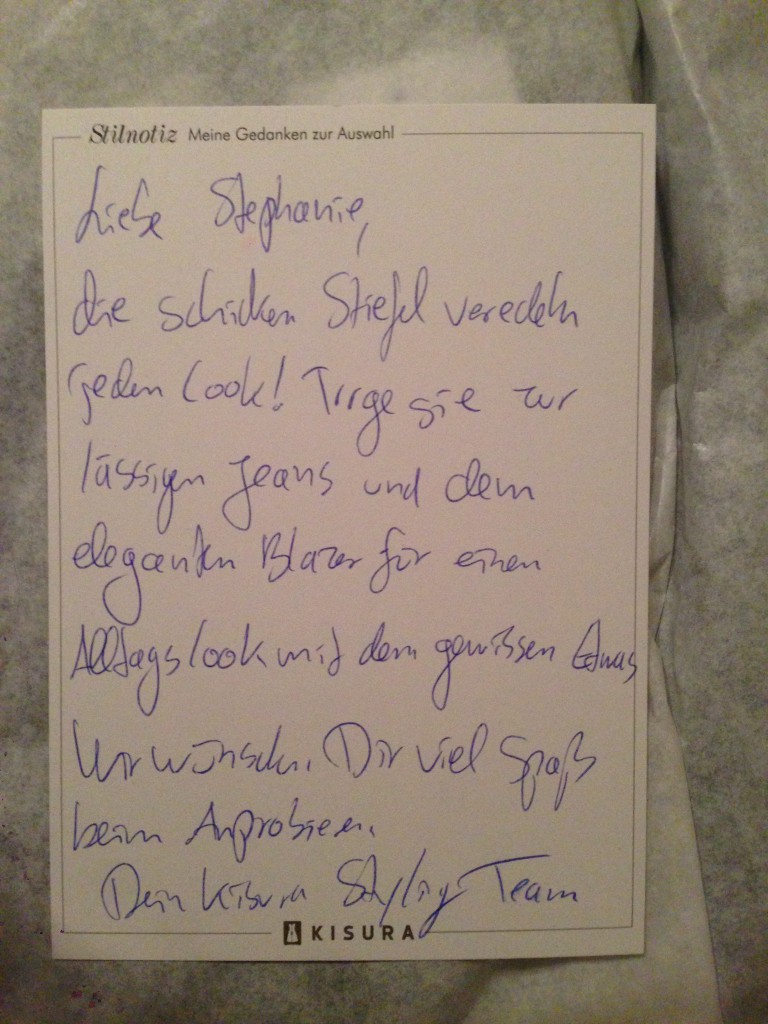 Stilnotiz Meine Gedanken zur Auswahl
Liebe Stephanie,
die schicken Stiefel veredeln
jeden Look! Trage sie zur
lässigen Jeans und dem
eleganten Blazer für einen
Alltagslook mit dem gewissen Etwas
Wir wünschen Dir viel Spaß
beim Anprobieren.
Dein Kisura Styling Team
KISURA